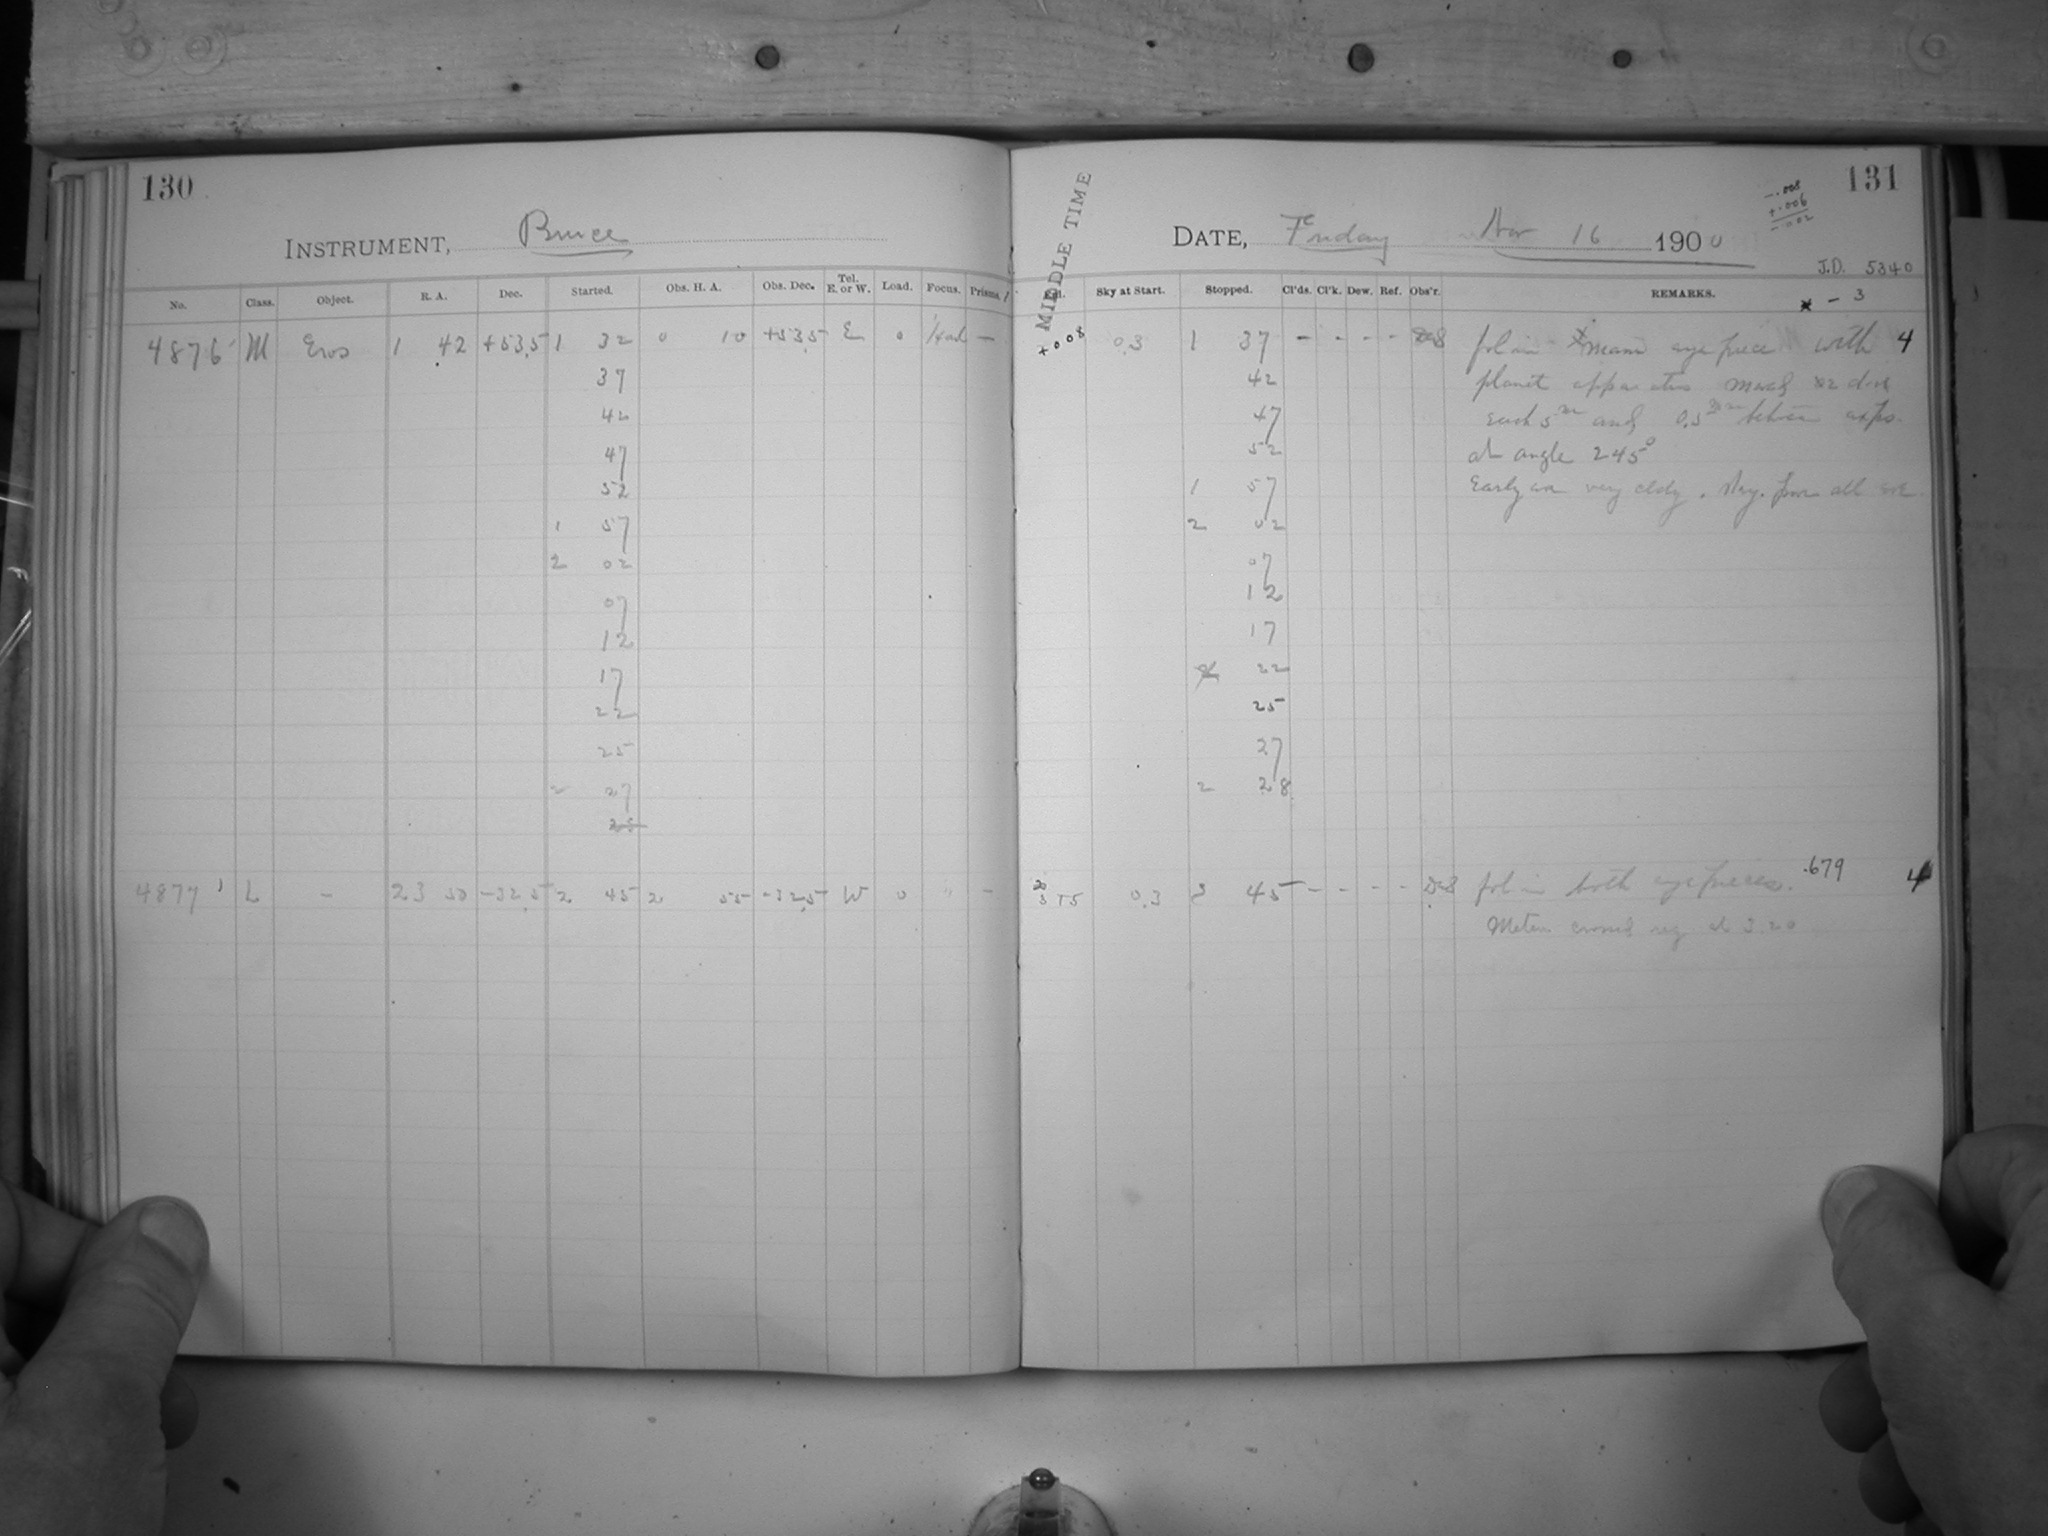 130
INSTRUMENT, Bruce
No. Class. Object. R. A. Dec. Started. Obs. H. A. Obs. Dec. Tel. E. or W. Load. Focus. Prisms.
4876 M Eros 1 42 +53.5 1 32 0 10 +53.5 E 0 —
37
42
47
52
1 57
2 02
07
12
17
22
25
2 27
25
4877 L – 23 50 -32.5 2 45 2 55 -32.5 W 0 " –
131
MIDDLE TIME
DATE, Friday Nov 16 1900
-.008
+.006
-.02
J.D. 5340
Sky at Start. Stopped. Cl'ds. Cl'k. Dew. Ref. Obs'r. REMARKS.
* – 3
+008 0.3 1 37 – – – – fol in eye piece with 4
42 planet apparatus
47 each 5 m and 0.5 mm
52 at angle 245°
1 57 Early eve very cldy.
2 02
07
12
17
22
25
27
2 28
0.3 3 45 – – – – fol in both eyepieces. .679 4
Meteor crossed reg at 3.20